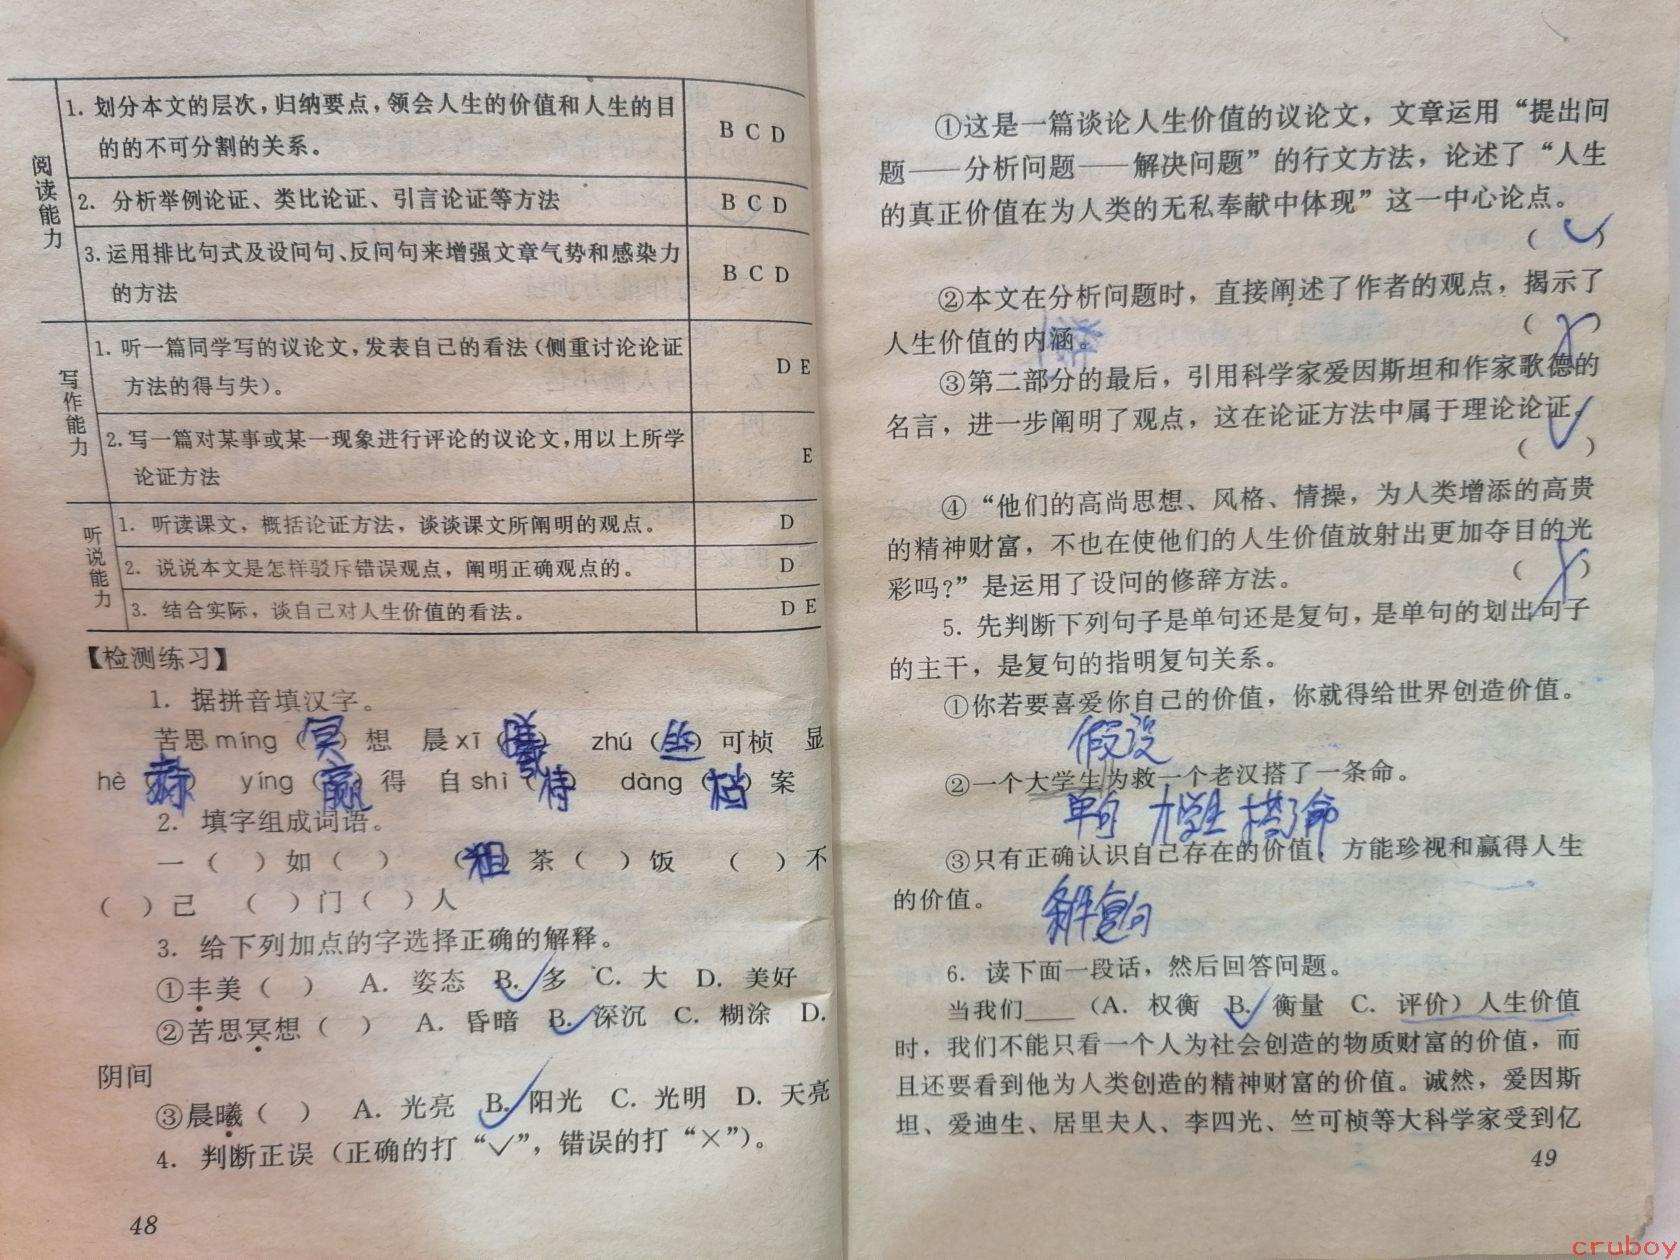 阅读能力
1. 划分本文的层次，归纳要点，领会人生的价值和人生的目
的的不可分割的关系。
B C D
2. 分析举例论证、类比论证、引言论证等方法
B C D
3. 运用排比句式及设问句、反问句来增强文章气势和感染力
的方法
B C D
写作能力
1. 听一篇同学写的议论文，发表自己的看法（侧重讨论论证
方法的得与失）。
D E
2. 写一篇对某事或某一现象进行评论的议论文，用以上所学
论证方法
E
听说能力
1. 听读课文，概括论证方法，谈谈课文所阐明的观点。
D
2. 说说本文是怎样驳斥错误观点，阐明正确观点的。
D
3. 结合实际，谈自己对人生价值的看法。
D E
【检测练习】
1. 据拼音填汉字。
苦思 míng（冥）想 晨 xī（曦） zhú（竺）可桢 显
hè（赫） yíng（赢）得 自 shì（恃） dàng（档）案
2. 填字组成词语。
一（ ）如（ ） （粗）茶（ ）饭 （ ）不
（ ）己 （ ）门（ ）人
3. 给下列加点的字选择正确的解释。
①丰美（ ） A. 姿态 B.✓ 多 C. 大 D. 美好
②苦思冥想（ ） A. 昏暗 B.✓ 深沉 C. 糊涂 D.
阴间
③晨曦（ ） A. 光亮 B.✓ 阳光 C. 光明 D. 天亮
4. 判断正误（正确的打“✓”，错误的打“×”）。
48
①这是一篇谈论人生价值的议论文，文章运用“提出问
题——分析问题——解决问题”的行文方法，论述了“人生
的真正价值在为人类的无私奉献中体现”这一中心论点。
（✓）
②本文在分析问题时，直接阐述了作者的观点，揭示了
人生价值的内涵。
（×）
③第二部分的最后，引用科学家爱因斯坦和作家歌德的
名言，进一步阐明了观点，这在论证方法中属于理论论证。
（✓）
④“他们的高尚思想、风格、情操，为人类增添的高贵
的精神财富，不也在使他们的人生价值放射出更加夺目的光
彩吗？”是运用了设问的修辞方法。（×）
5. 先判断下列句子是单句还是复句，是单句的划出句子
的主干，是复句的指明复句关系。
①你若要喜爱你自己的价值，你就得给世界创造价值。
假设
②一个大学生为救一个老汉搭了一条命。
单句 大学生 搭了命
③只有正确认识自己存在的价值，方能珍视和赢得人生
的价值。
条件复句
6. 读下面一段话，然后回答问题。
当我们____（A. 权衡 B.✓ 衡量 C. 评价）人生价值
时，我们不能只看一个人为社会创造的物质财富的价值，而
且还要看到他为人类创造的精神财富的价值。诚然，爱因斯
坦、爱迪生、居里夫人、李四光、竺可桢等大科学家受到亿
49
cruboy